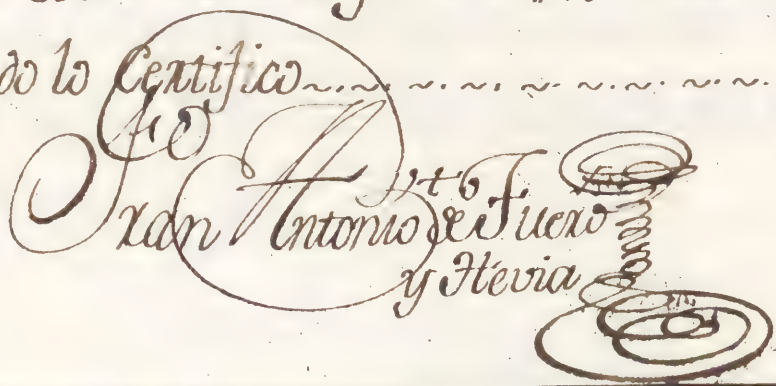 do lo Certifico
Fran.co Antonio de Fuero
y Hevia